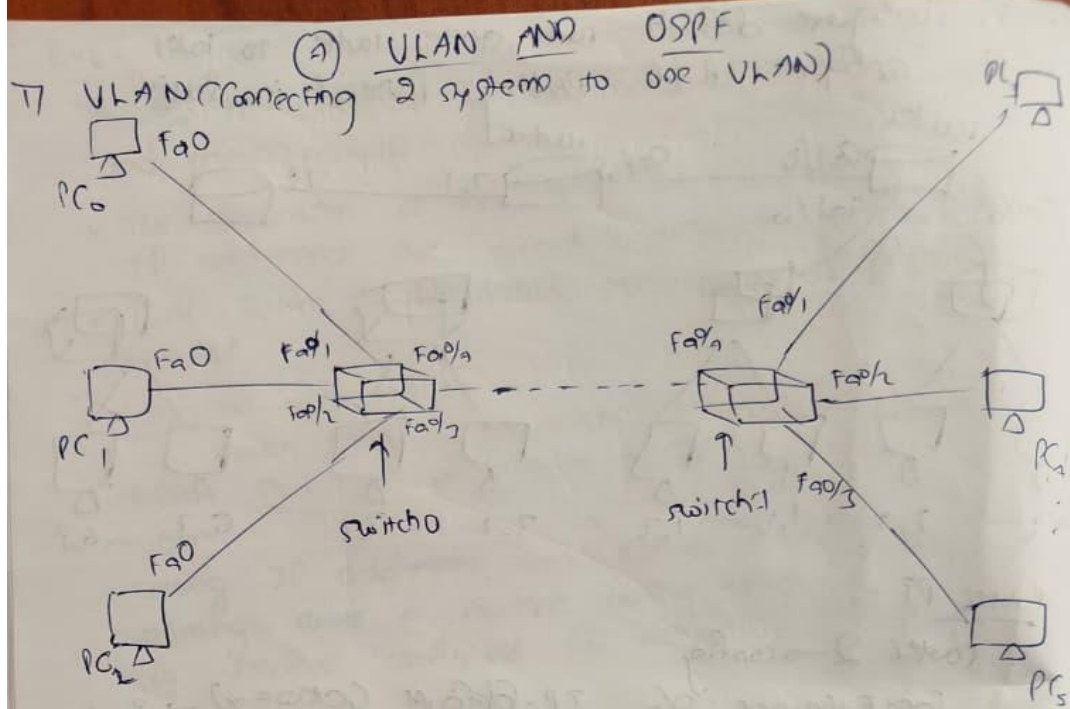 ④ VLAN AND OSPF
1) VLAN (Connecting 2 systems to one VLAN)
Fa0
PC0
PC3
Fa0
PC1
Fa0/1
Fa0/4
Fa0/2
Fa0/3
switch0
Fa0/4
Fa0/1
Fa0/2
Fa0/3
switch-1
Fa0
PC2
PC5